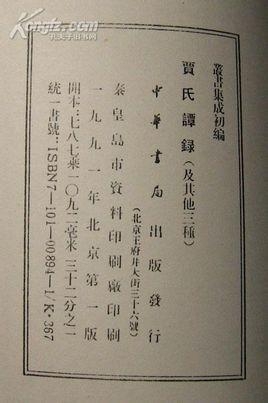 叢書集成初編
賈氏譚録(及其他三種)
中華書局出版發行
(北京王府井大街三十六號)
秦皇島市資料印刷廠印刷
一九九一年北京第一版
開本:七八七乘一〇九二毫米 三十二分之一
統一書號:ISBN7-101-00894-1/K·367